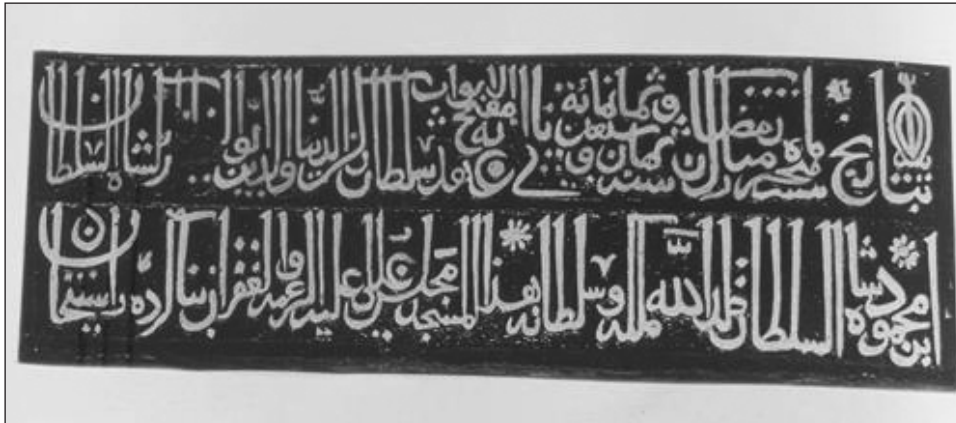 بتاريخ ماه مبارك رمضان سنه ثمان و سبعين و ثمانمائة يا مفتح الابواب سلطان الدنيا والدين ابو شاه السلطان
ابن محمود شاه السلطان خلد الله ملكه و سلطانه هذا المسجد مجلس عليه الرحمة والغفران بنا كرده راستيخان